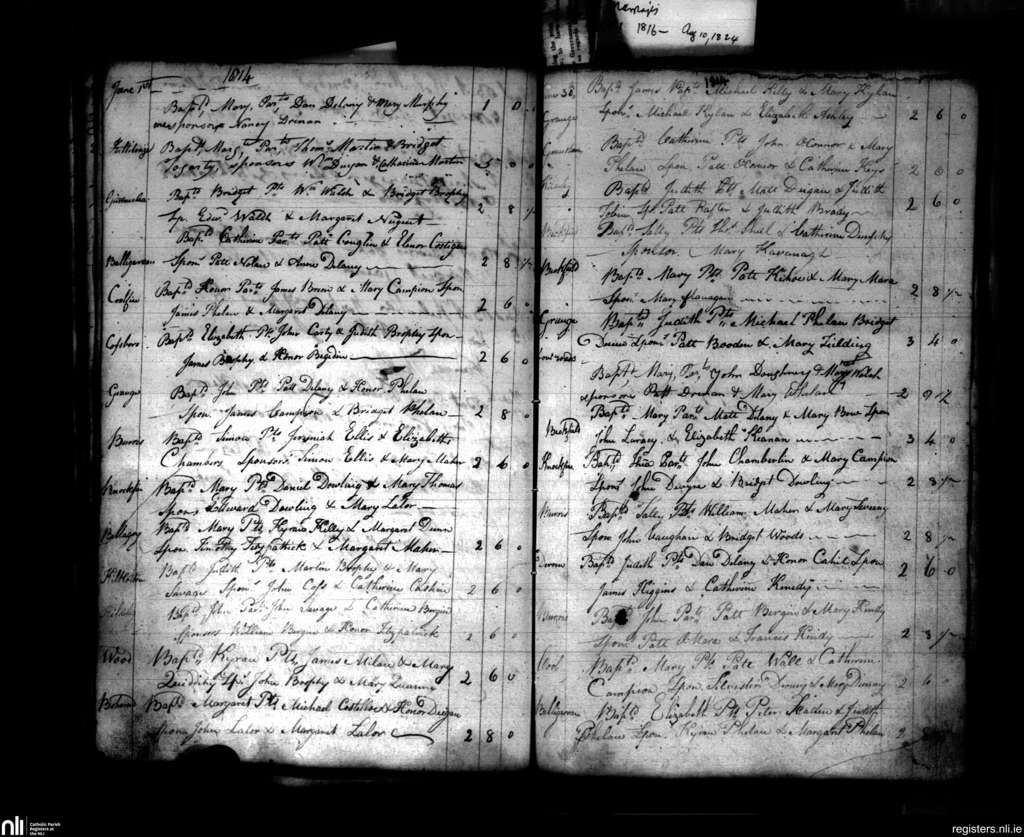 marriages
1816 - Aug 10, 1824
1814
June 1st
Bapd. Mary, Parts Dan Delany & Mary Murphy 1 0
were sponsors Nancy Drenan
Bapd. Margt. Parts Thoms. Martin & Bridget
Fogarty, sponsors Wm. Duigan & Catharine Martin 5 0 0
Bapd. Bridget Pts Wm Welsh & Bridget Brophy
Sp. Edwd. Walsh & Margaret Nugent 2 8 ½
Bapd. Catherine Parts Patt Coughlin & Elenor Costigan
Balligeehan Spon. Patt Nolan & Anne Delany 2 8 ½
Coolfin Bapd. Honor Parts James Breen & Mary Campion Spon
James Phelan & Margaret Delany 2 6 0
Bapd. Elizabeth Pts John Carty & Judith Brophy Spon
James Brophy & Honor Bergin 2 6 0
Grange Bapd. John Pts Patt Delany & Honor Phelan
Spon. James Campion & Bridget Phelan 2 8 0
Burres Bapd. Simon Pts Jeremiah Ellis & Elizabeth
Chambers, Sponsors Simon Ellis & Mary Maher 2 6 0
Knockfin Bapd. Mary Pts Daniel Dowling & Mary Thomas
Spons Edward Dowling & Mary Lalor
Ballagry Bapd. Mary Pts Kyran Kelly & Margaret Dunn
Spon. Timothy Fitzpatrick & Margaret Maher 2 6 0
Bapd. Judith Pts Martin Brophy & Mary
Savage Spon. John Coss & Catherine Cashin 2 6 0
Bapd. John Par. John Savage & Catherine Bergin
Sponsors William Bergin & Honor Fitzpatrick 2 6 0
Wood Bapd. Kyran Pts James Milan & Mary
Quiddihy Spn. John Brophy & Mary 2 6 0
Bapd. Margaret Pts Michael Costiloe & Honor Duigan
Spons John Lalor & Margaret Lalor 2 8 0
1814
June 30, Bapd. James Parts Michael Kelly & Mary Hylan
Grange Spon. Michael Hylan & Elizabeth Ashley 2 6 0
Bapd. Catherine Pts John OConnor & Mary
Phelan Spon Patt OConnor & Catherine Keys 2 6 0
Bapd. Judith Pts Matt Duigan & Judith
Tobin Sp. Patt Rafter & Judith Brady 2 6 0
Bapd. Sally Pts Thos. Shiel & Catherine Dunphy
Sponsor Mary Kavenagh
Bockfield Bapd. Mary Pts Patt Kihoe & Mary Mara
Spon. Mary Flanagan 2 8 ½
Grange Bapd. Judith Pts Michael Phelan Bridget
Dunne Spons. Patt Booden & Mary Fielding 3 4 0
Bapt. Mary, Parts John Doughney & Mary Walsh
sponsors Patt Drenan & Mary Phelan 2 9 ½
Bockfield Bapd. Mary Parts Matt Delany & Mary Bow Spon
John & Elizabeth Keenan 3 4 0
Knockfin Bapd. Parts John Chamberlin & Mary Campion
Spons John Dwyre & Bridget Dowling 2 8 ½
Burres Bapd. Sally Pts William Maher & Mary Sweeny
Spon John Vaughan & Bridget Woods 2 8 ½
Bapd. Judith Pts Dan Delany & Honor Cahil Spon
James Higgins & Catherine Kenedy 2 6 0
Burres Bapd. John Parts Patt Bergin & Mary
Spons Patt OMara & Frances 2 8 ½
Bapd. Mary Pts Patt Wall & Catherine
Campion Spon. Silvester & Mary 2 6
Balligeehan Bapd. Elizabeth Pts Peter & Judith
Phelan Spon. Kyran Phelan & Margaret Phelan 2
nli
Catholic Parish
Registers at
the NLI
registers.nli.ie